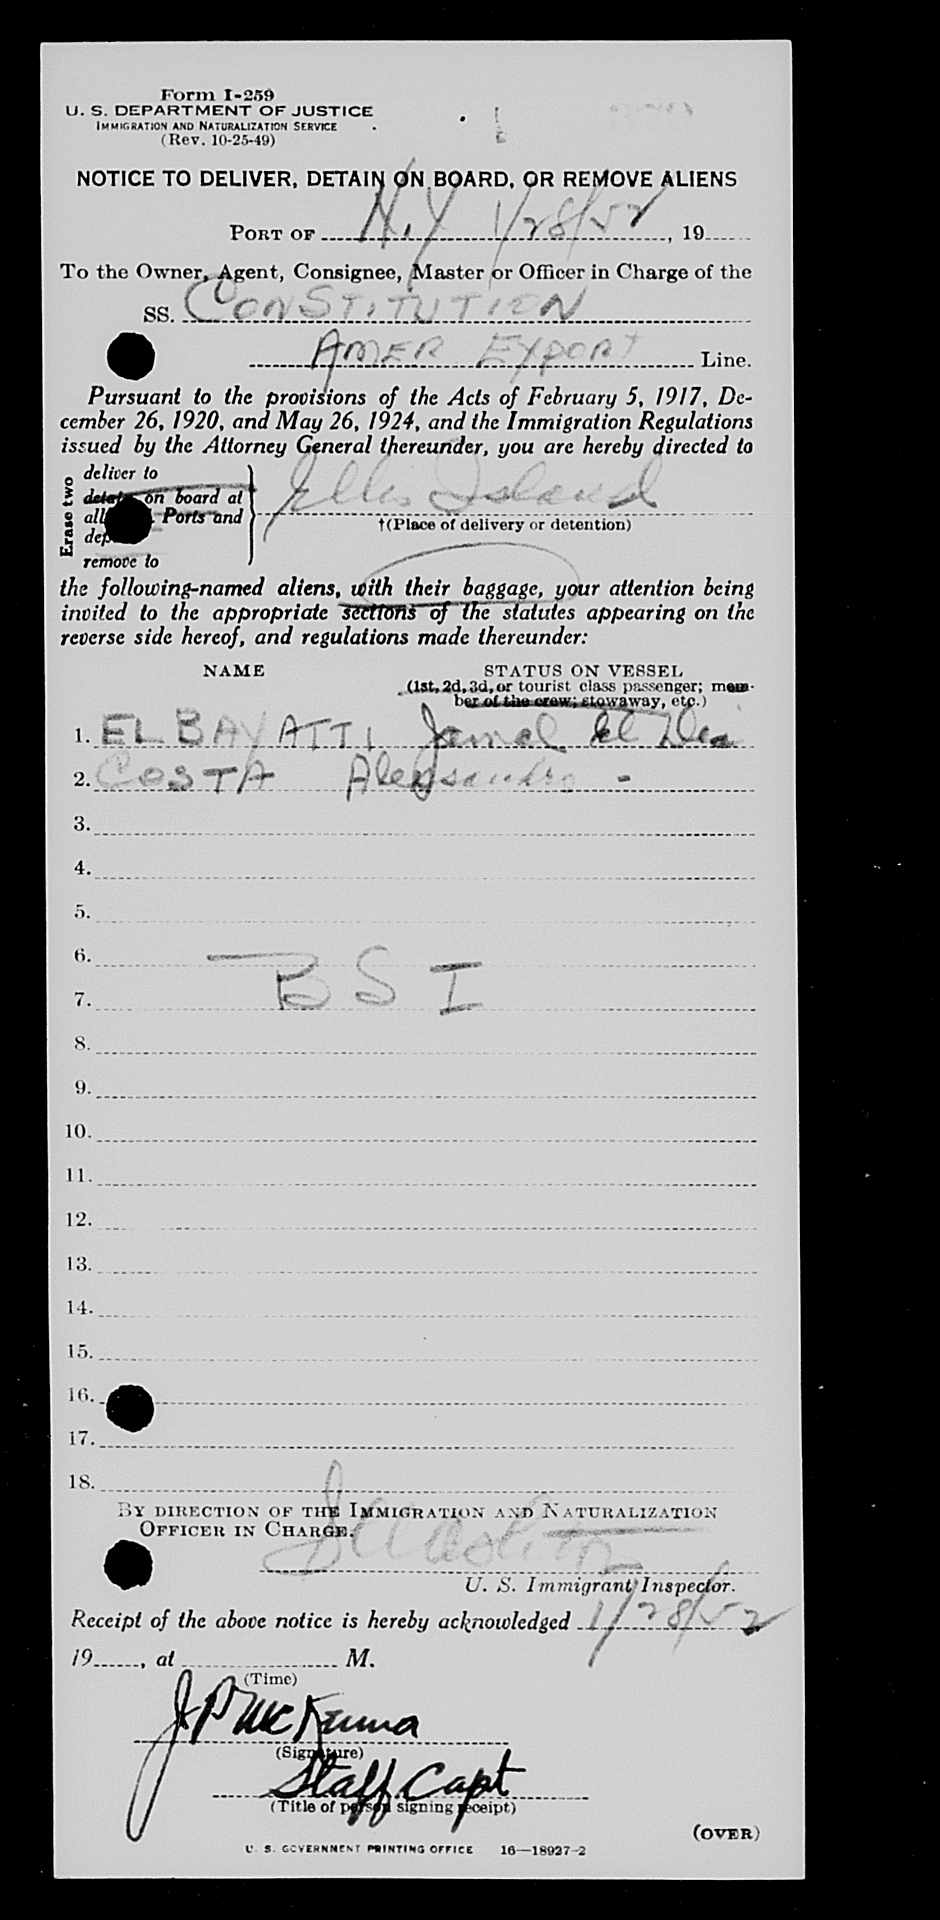 Form I-259
U. S. DEPARTMENT OF JUSTICE
IMMIGRATION AND NATURALIZATION SERVICE
(Rev. 10-25-49)
NOTICE TO DELIVER, DETAIN ON BOARD, OR REMOVE ALIENS
PORT OF N.Y 1/28/52, 19
To the Owner, Agent, Consignee, Master or Officer in Charge of the
SS. CONSTITUTION
AMER EXPORT Line.
Pursuant to the provisions of the Acts of February 5, 1917, De-
cember 26, 1920, and May 26, 1924, and the Immigration Regulations
issued by the Attorney General thereunder, you are hereby directed to
Erase two
deliver to
detain on board at
all Ports and
remove to
Ellis Island
†(Place of delivery or detention)
the following-named aliens, with their baggage, your attention being
invited to the appropriate sections of the statutes appearing on the
reverse side hereof, and regulations made thereunder:
NAME STATUS ON VESSEL
(1st, 2d, 3d, or tourist class passenger; mem-
ber of the crew; stowaway, etc.)
1. EL BAYATTI Jamal El Din
2. COSTA Alessandro -
3.
4.
5.
6.
7. BSI
8.
9.
10.
11.
12.
13.
14.
15.
16.
17.
18.
BY DIRECTION OF THE IMMIGRATION AND NATURALIZATION
OFFICER IN CHARGE.
U. S. Immigrant Inspector.
Receipt of the above notice is hereby acknowledged 1/28/52
19, at M.
(Time)
J P McKenna
(Signature)
Staff Capt
(Title of person signing receipt)
(OVER)
U. S. GOVERNMENT PRINTING OFFICE 16—18927-2